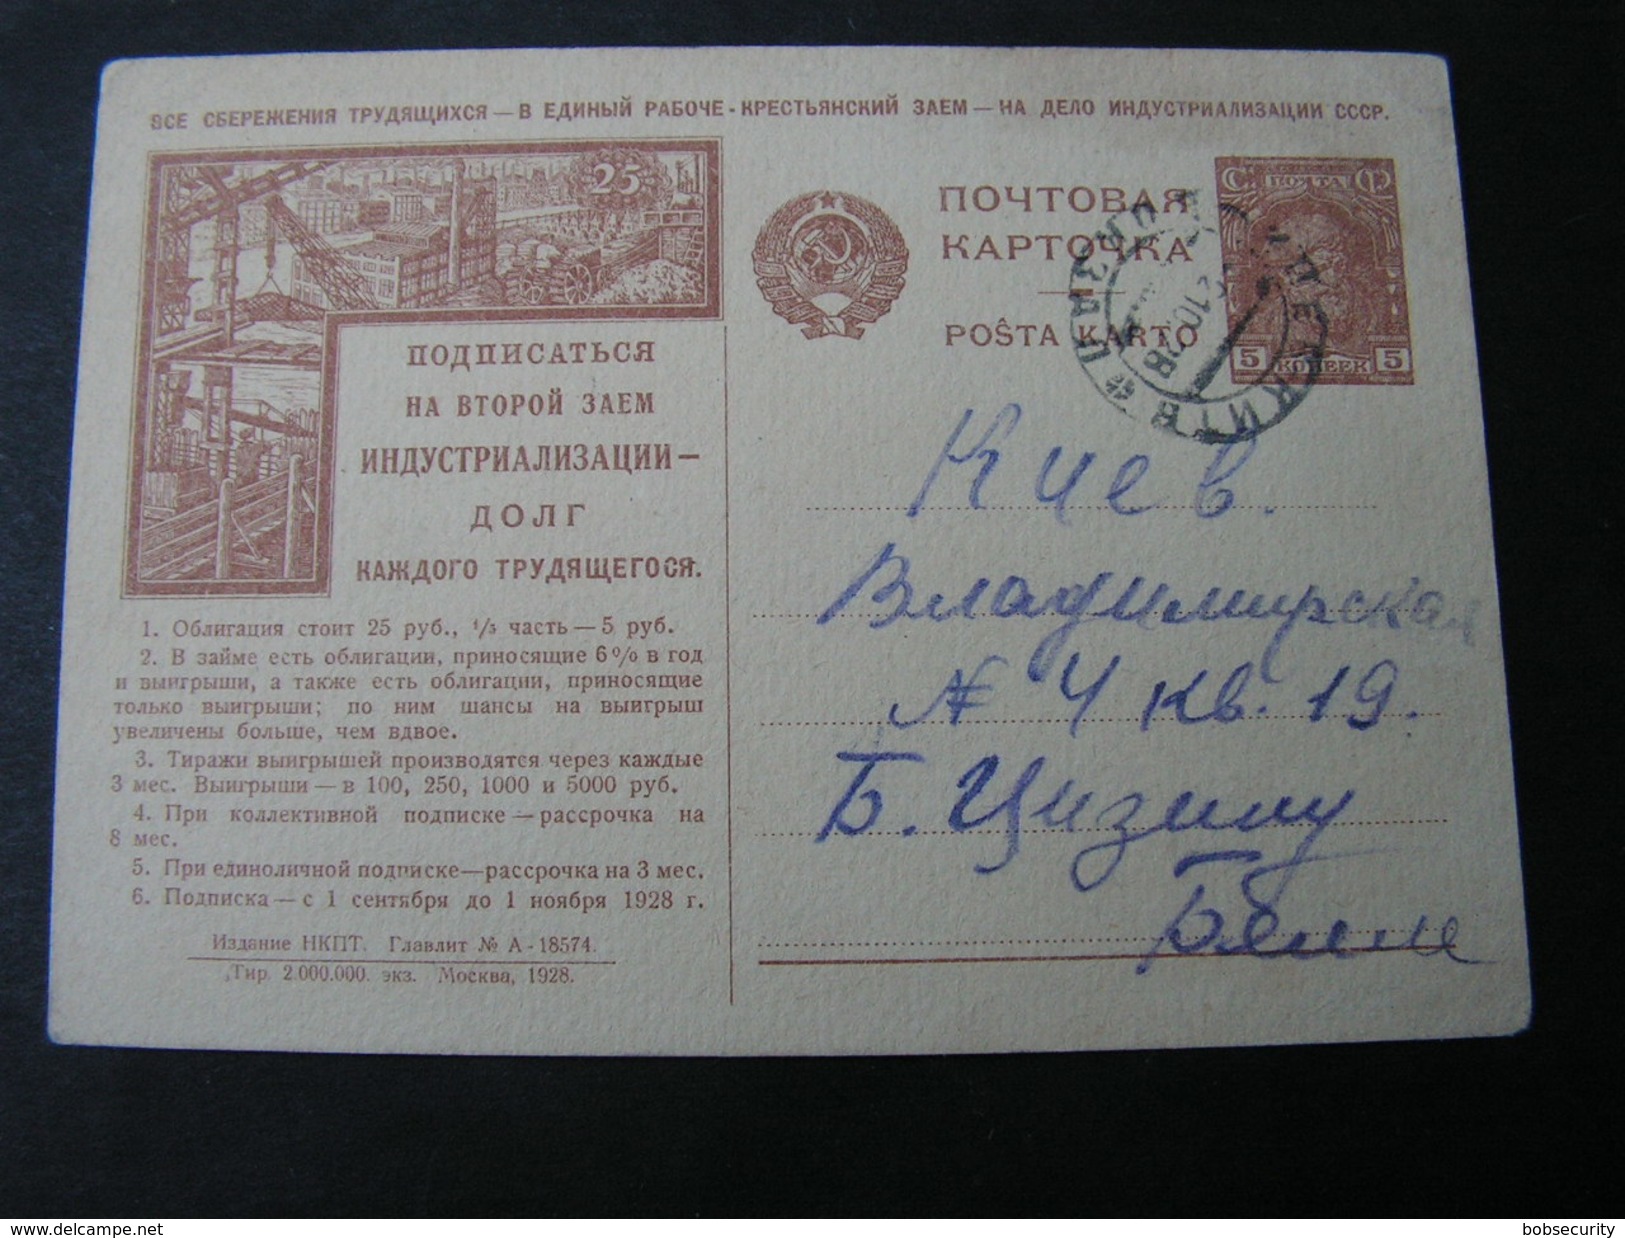 ВСЕ СБЕРЕЖЕНИЯ ТРУДЯЩИХСЯ — В ЕДИНЫЙ РАБОЧЕ-КРЕСТЬЯНСКИЙ ЗАЕМ — НА ДЕЛО ИНДУСТРИАЛИЗАЦИИ СССР.
25
ПОДПИСАТЬСЯ
НА ВТОРОЙ ЗАЕМ
ИНДУСТРИАЛИЗАЦИИ —
ДОЛГ
КАЖДОГО ТРУДЯЩЕГОСЯ.
1. Облигация стоит 25 руб., 1/5 часть — 5 руб.
2. В займе есть облигации, приносящие 6% в год
и выигрыши, а также есть облигации, приносящие
только выигрыши; по ним шансы на выигрыш
увеличены больше, чем вдвое.
3. Тиражи выигрышей производятся через каждые
3 мес. Выигрыши — в 100, 250, 1000 и 5000 руб.
4. При коллективной подписке — рассрочка на
8 мес.
5. При единоличной подписке — рассрочка на 3 мес.
6. Подписка — с 1 сентября до 1 ноября 1928 г.
Издание НКПТ. Главлит № А-18574.
Тир. 2.000.000. экз. Москва, 1928.
ПОЧТОВАЯ
КАРТОЧКА
POŜTA KARTO
С. ПОЧТА Ф.
5 КОПЕЕК 5
Киев.
Владимирская
№ 4 кв. 19.
Б. Цизину
delcampe.net
bobsecurity